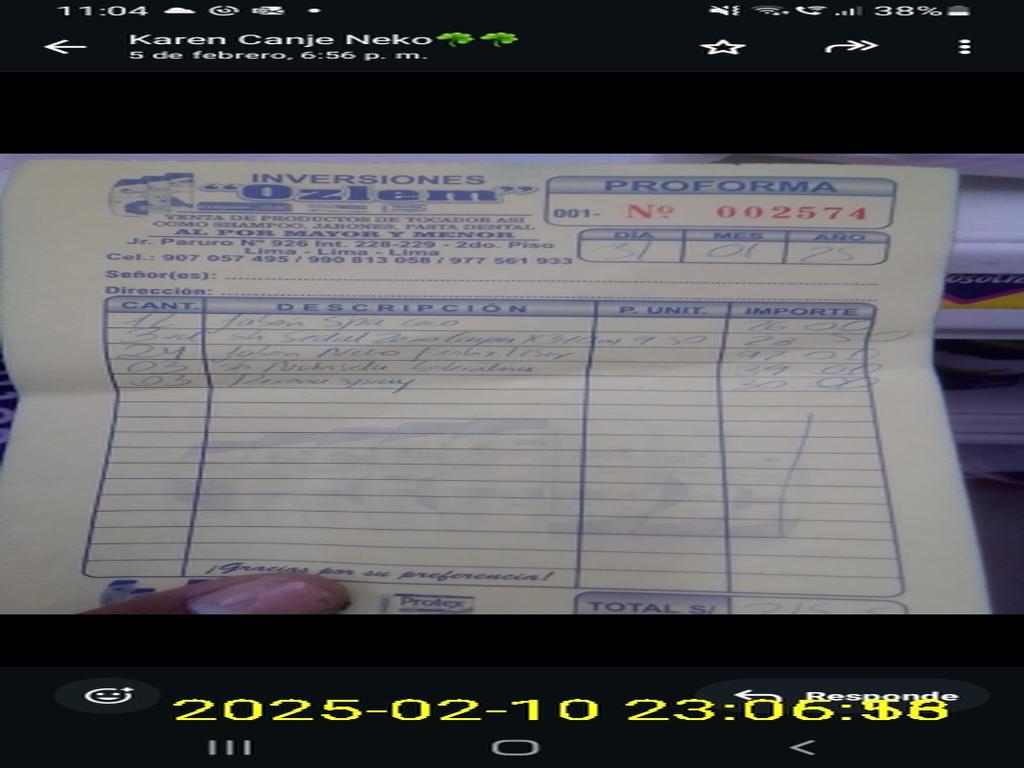 11:04 38%
Karen Canje Neko
5 de febrero, 6:56 p. m.
INVERSIONES
"Ozlem"
VENTA DE PRODUCTOS DE TOCADOR ASI
COMO SHAMPOO, JABONES, PASTA DENTAL
AL POR MAYOR Y MENOR
Jr. Paruro Nº 926 Int. 228-229 - 2do. Piso
Lima - Lima - Lima
Cel.: 907 057 495 / 990 813 058 / 977 561 933
PROFORMA
001- Nº 002574
DÍA MES AÑO
31 01 25
Señor(es):
Dirección:
CANT. DESCRIPCIÓN P. UNIT. IMPORTE
12 Jabon Spa Coco 26 00
Sh Sedal 9 50 28 50
24 Jabon Neko 92 00
03 Sh Nutribela 39 00
03 Rexona spray 30 00
¡Gracias por su preferencia!
Protex
TOTAL S/
Responde
2025-02-10 23:06